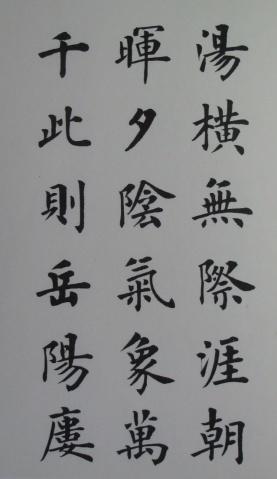 湯橫無際涯朝
暉夕陰氣象萬
千此則岳陽廔